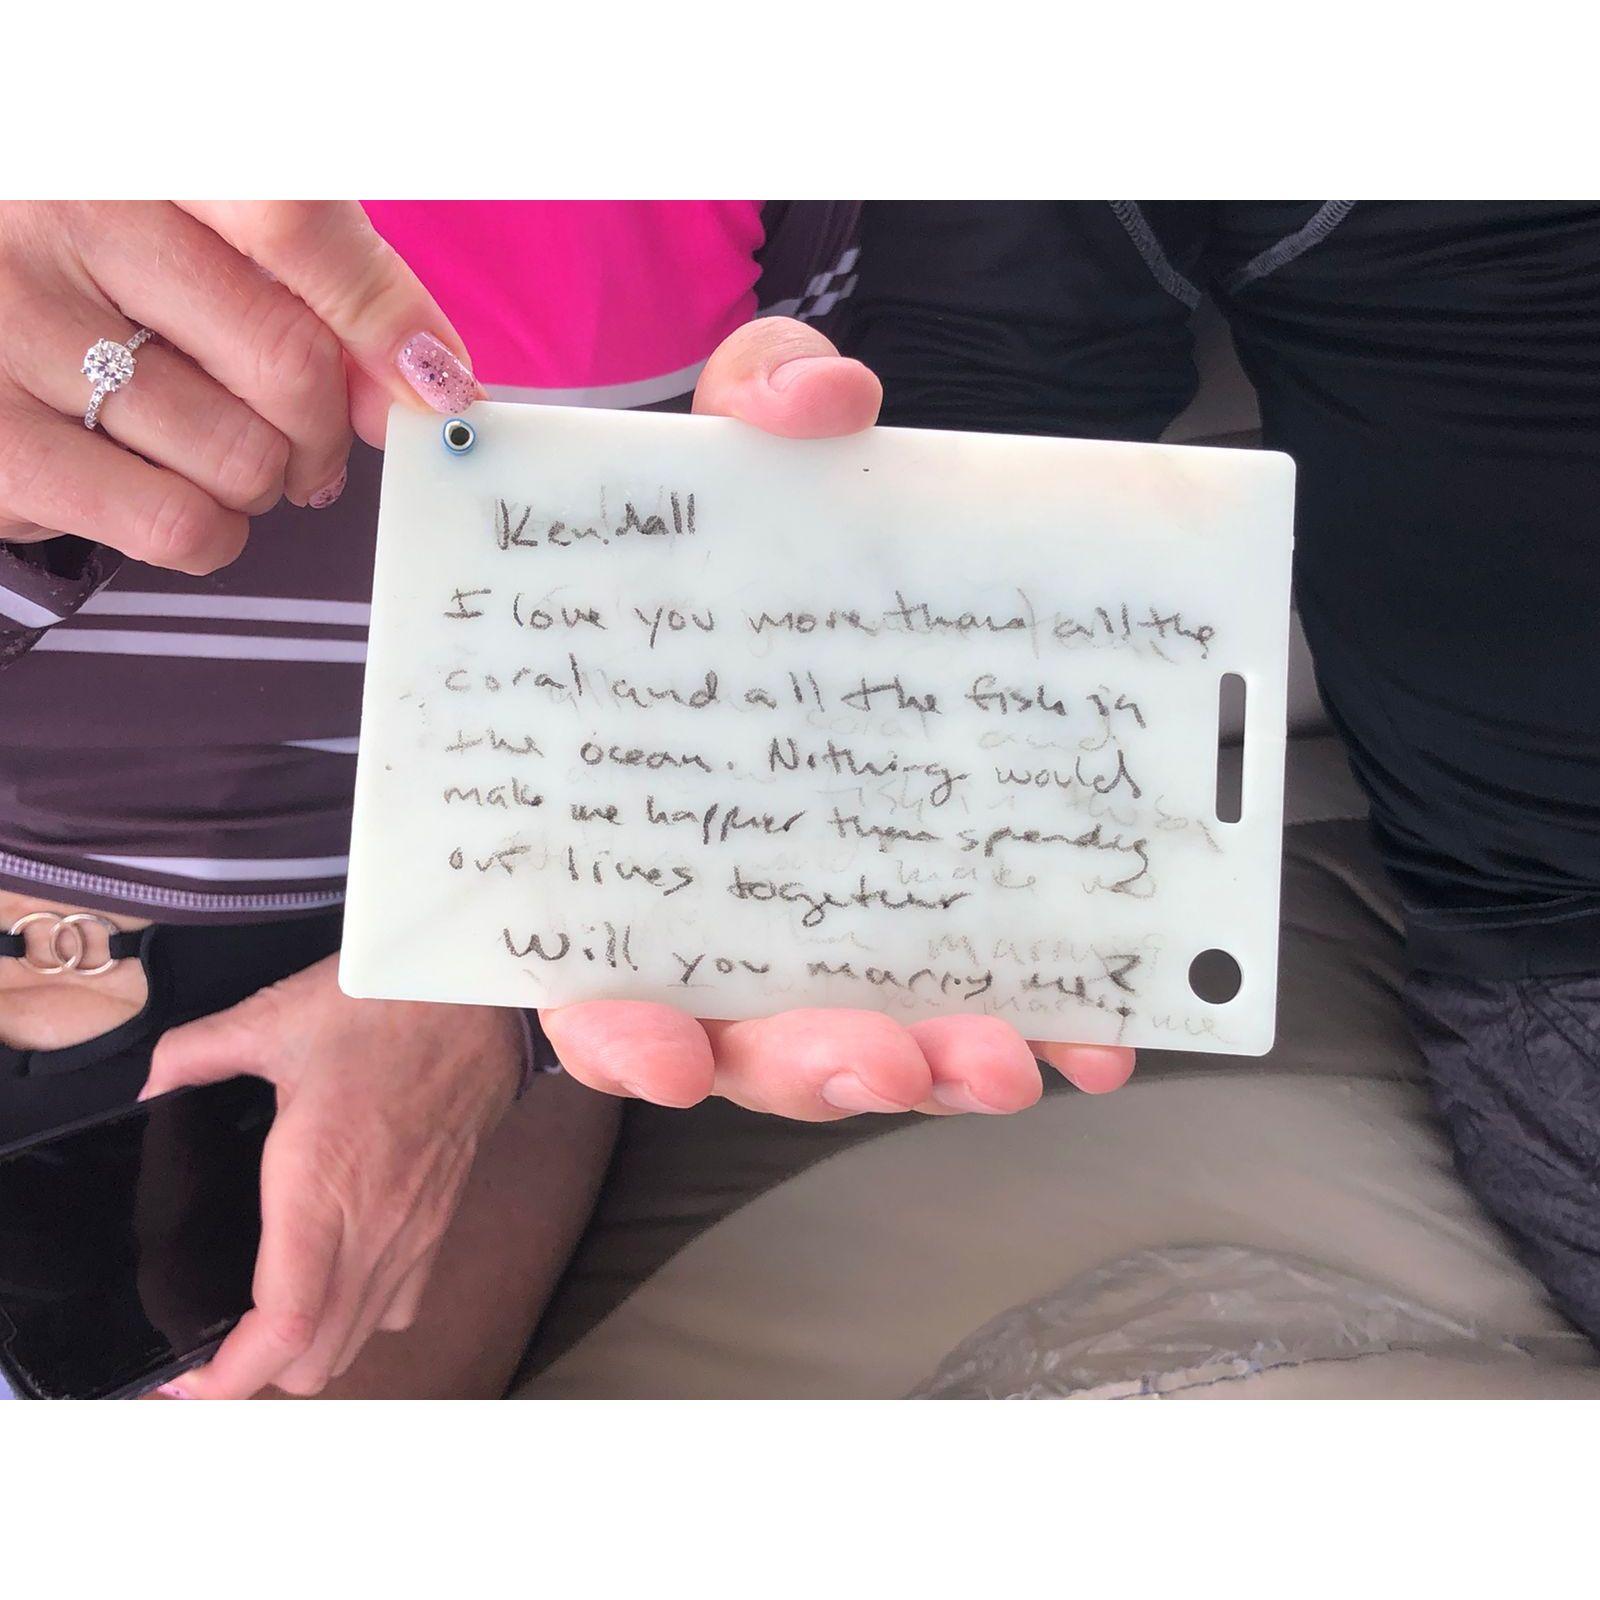 Kendall
I love you more than all the
coral and all the fish in
the ocean. Nothing would
make me happier than spending
our lives together
Will you marry me?